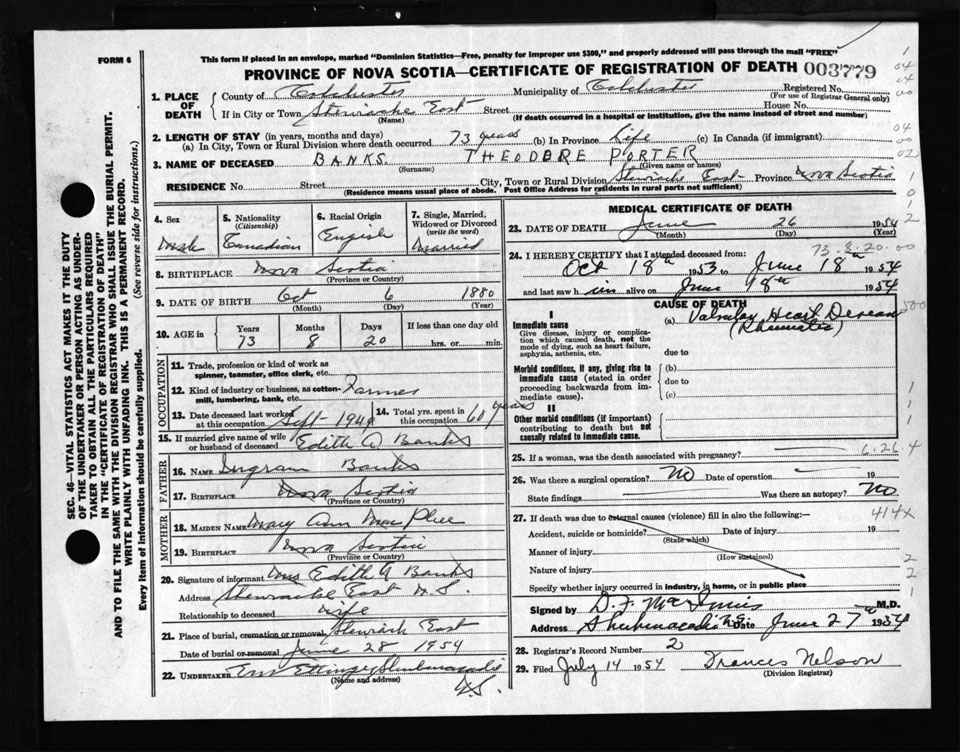 FORM 6
This form if placed in an envelope, marked "Dominion Statistics—Free, penalty for improper use $300," and properly addressed will pass through the mail "FREE"
PROVINCE OF NOVA SCOTIA—CERTIFICATE OF REGISTRATION OF DEATH 003779
SEC. 46—VITAL STATISTICS ACT MAKES IT THE DUTY
OF THE UNDERTAKER OR PERSON ACTING AS UNDER-
TAKER TO OBTAIN ALL THE PARTICULARS REQUIRED
IN THE "CERTIFICATE OF REGISTRATION OF DEATH"
AND TO FILE THE SAME WITH THE DIVISION REGISTRAR WHO SHALL ISSUE THE BURIAL PERMIT.
WRITE PLAINLY WITH UNFADING INK. THIS IS A PERMANENT RECORD.
Every item of information should be carefully supplied. (See reverse side for instructions.)
1. PLACE OF DEATH
County of Colchester Municipality of Colchester Registered No.
(For use of Registrar General only)
If in City or Town Stewiacke East Street House No.
(Name) (If death occurred in a hospital or institution, give the name instead of street and number)
2. LENGTH OF STAY (in years, months and days)
(a) In City, Town or Rural Division where death occurred 73 years (b) In Province Life (c) In Canada (if immigrant)
3. NAME OF DECEASED BANKS THEODORE PORTER
(Surname) (Given name or names)
RESIDENCE No. Street City, Town or Rural Division Stewiacke East Province Nova Scotia
(Residence means usual place of abode. Post Office Address for residents in rural parts not sufficient)
4. Sex Male
5. Nationality (Citizenship) Canadian
6. Racial Origin English
7. Single, Married, Widowed or Divorced (write the word) Married
8. BIRTHPLACE Nova Scotia
(Province or Country)
9. DATE OF BIRTH Oct 6 1880
(Month) (Day) (Year)
10. AGE in Years Months Days If less than one day old
73 8 20 hrs. or min.
OCCUPATION
11. Trade, profession or kind of work as
spinner, teamster, office clerk, etc.
12. Kind of industry or business, as cotton-
mill, lumbering, bank, etc. Farmer
13. Date deceased last worked
at this occupation Sept - 1949
14. Total yrs. spent in
this occupation 60 years
15. If married give name of wife
or husband of deceased Edith A Banks
FATHER
16. NAME Ingram Banks
17. BIRTHPLACE Nova Scotia
(Province or Country)
MOTHER
18. MAIDEN NAME Mary Ann MacPhee
19. BIRTHPLACE Nova Scotia
(Province or Country)
20. Signature of informant Mrs Edith A Banks
Address Stewiacke East N.S.
Relationship to deceased wife
21. Place of burial, cremation or removal Stewiack East
Date of burial or removal June 28 1954
22. UNDERTAKER Em Ettinger Shubenacadie
(Name and address) N.S.
MEDICAL CERTIFICATE OF DEATH
23. DATE OF DEATH June 26 1954
(Month) (Day) (Year)
73.8.20.00
24. I HEREBY CERTIFY that I attended deceased from:
Oct 18th 1953 to June 18th 1954
and last saw him alive on June 18th 1954
CAUSE OF DEATH
I
Immediate cause (a) Valvular Heart Disease
Give disease, injury or complica- (Rheumatic)
tion which caused death, not the
mode of dying, such as heart failure,
asphyxia, asthenia, etc. due to
Morbid conditions, if any, giving rise to (b)
immediate cause (stated in order due to
proceeding backwards from im-
mediate cause). (c)
II
Other morbid conditions (if important)
contributing to death but not
causally related to immediate cause.
25. If a woman, was the death associated with pregnancy? 6.26 4
26. Was there a surgical operation? No Date of operation 19
State findings Was there an autopsy? No
27. If death was due to external causes (violence) fill in also the following:— 414x
Accident, suicide or homicide? Date of injury 19
(State which)
Manner of injury
(How sustained)
Nature of injury
Specify whether injury occurred in industry, in home, or in public place
Signed by D. F. MacInnis M.D.
Address Shubenacadie N.S. Date June 27th 1954
28. Registrar's Record Number 2
29. Filed July 14 1954 Frances Nelson
(Division Registrar)